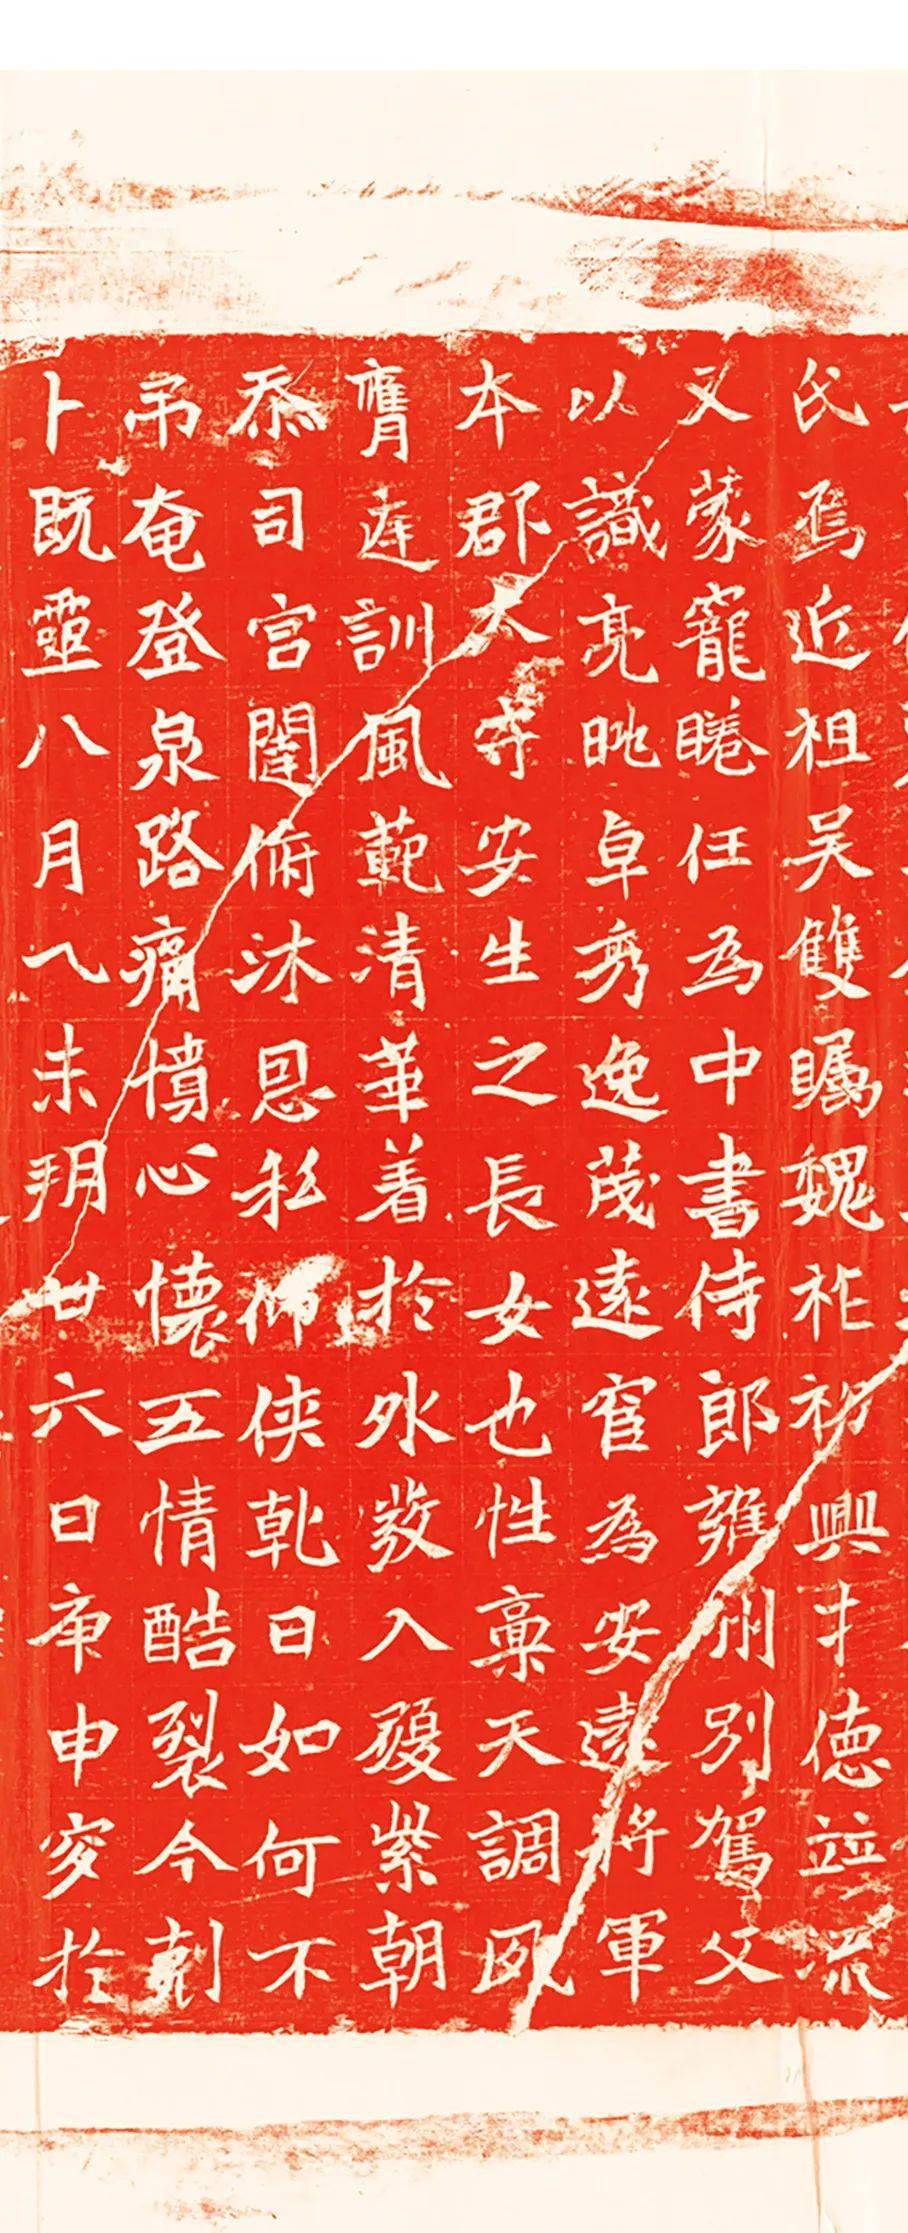 氏焉近祖吴雙矚魏祚初興才德竝流
又蒙寵睠任為中書侍郎雍州別駕父
以識亮晀卓秀逸茂遠官為安遠將軍
本郡太守安生之長女也性稟天調夙
膺廷訓風範清華着於外發入紫朝
忝司宫闈俯沐恩私仰侠乹日如何不
吊奄登泉路痛憤心懷五情酷裂今剋
卜既靈八月乙未朔廿六日庚申穸於